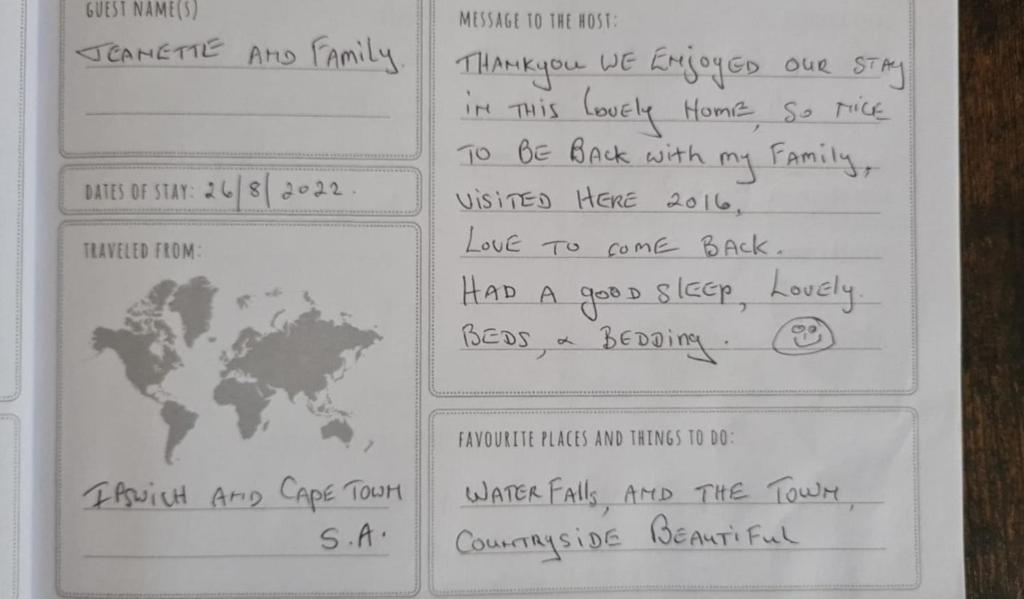 GUEST NAME(S)
JEANETTE AND FAMILY.
DATES OF STAY: 26/8/2022.
TRAVELED FROM:
IPSWICH AND CAPE TOWN
S.A.
MESSAGE TO THE HOST:
THANKYOU WE ENJOYED OUR STAY
IN THIS LOVELY HOME, SO NICE
TO BE BACK WITH MY FAMILY,
VISITED HERE 2016,
LOVE TO COME BACK.
HAD A GOOD SLEEP, LOVELY.
BEDS, & BEDDING.
FAVOURITE PLACES AND THINGS TO DO:
WATER FALLS, AND THE TOWN,
COUNTRYSIDE BEAUTIFUL